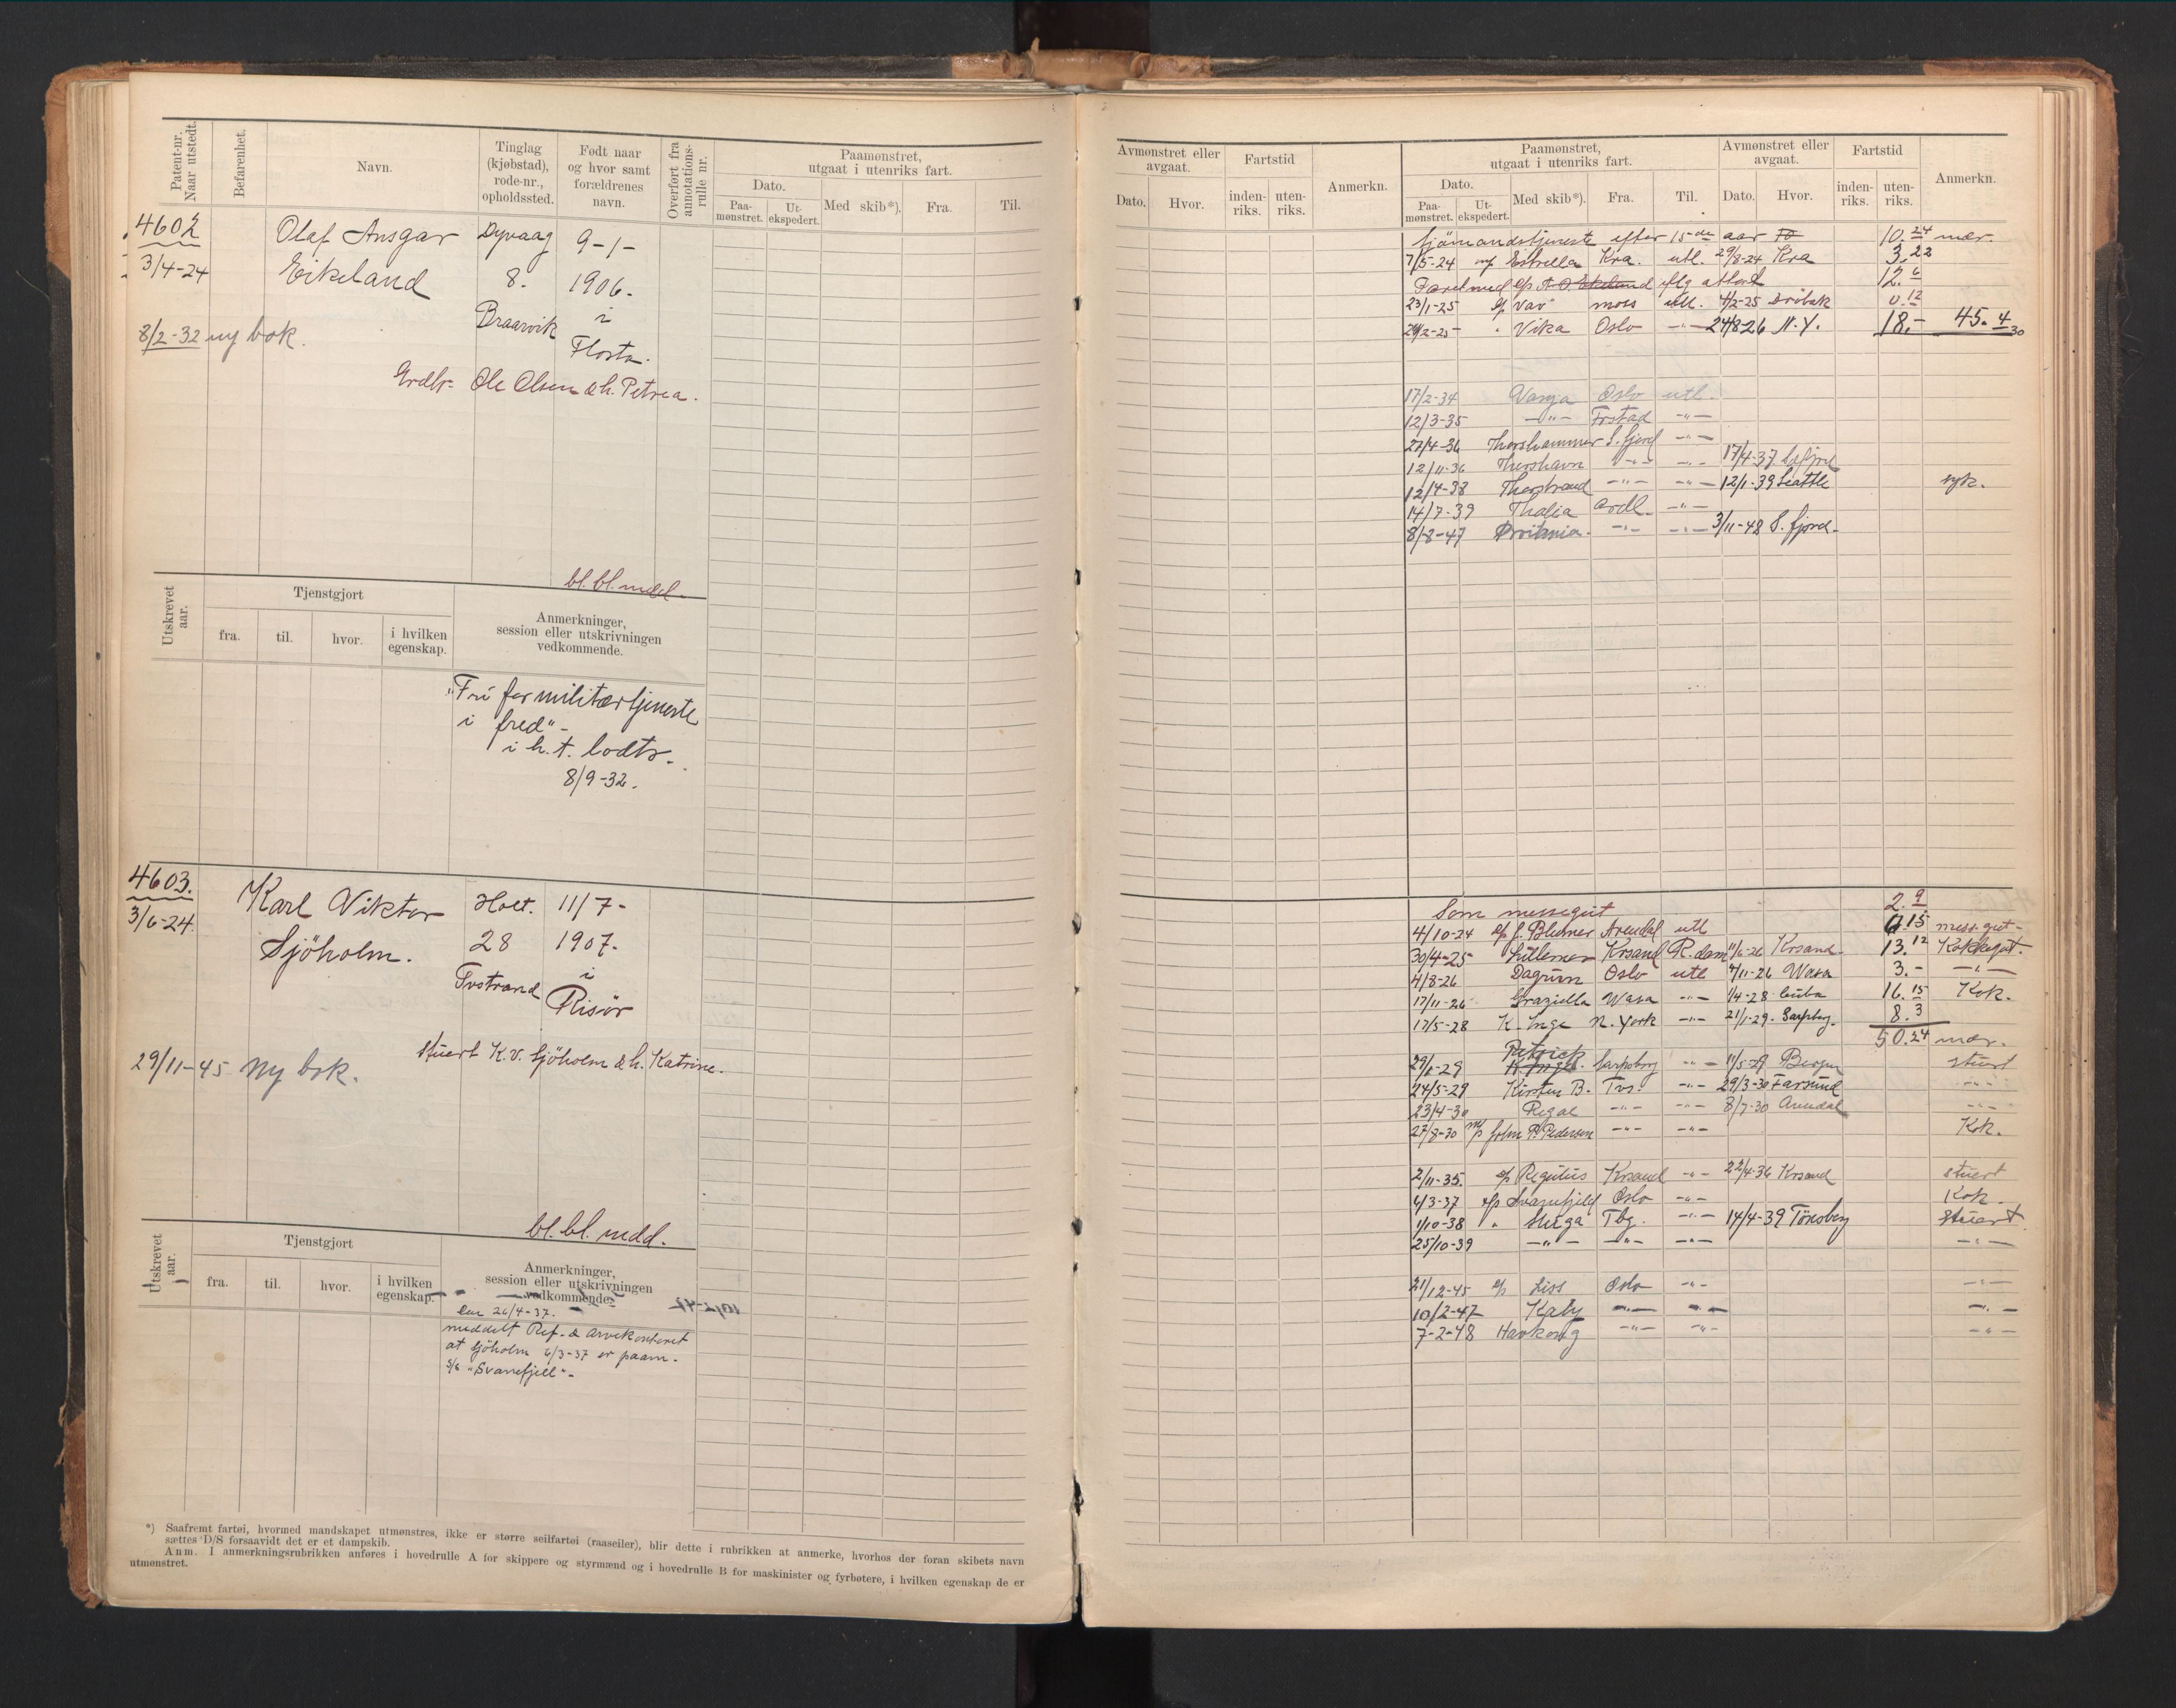 Patent-nr. Naar utstedt.
Befarenhet.
Navn.
Tinglag (kjøbstad), rode-nr., opholdssted.
Født naar og hvor samt forældrenes navn.
Overført fra annotations-rulle nr.
Paamønstret, utgaat i utenriks fart.
Dato.
Paa-mønstret.
Ut-ekspedert.
Med skib*).
Fra.
Til.
4602
3/4-24
Olaf Ansgar
Eikeland
Dyvaag
8.
Braarvik
9-1-
1906.
i
Flosta.
8/2-32 ny bok.
Grdbr. Ole Olsen & h. Petrea.
bl. bl. mdd.
Utskrevet aar.
Tjenstgjort
fra.
til.
hvor.
i hvilken egenskap.
Anmerkninger, session eller utskrivningen vedkommende.
"Fri for militærtjeneste
i fred" -
i h. t. lodtr.
8/9-32.
4603.
3/6-24
Karl Viktor
Sjöholm.
Holt.
28
Tvstrand
11/7-
1907.
i
Risör
29/11-45 Ny bok.
Stuert K. V. Sjöholm & h. Katrine.
bl. bl. mdd.
Utskrevet aar.
Tjenstgjort
fra.
til.
hvor.
i hvilken egenskap.
Anmerkninger, session eller utskrivningen vedkommende.
26/4-37.
meddelt Ref. & arvekontoret
at Sjöholm 6/3-37 er paam.
S/S "Svanefjell".
*) Saafremt fartøi, hvormed mandskapet utmønstres, ikke er større seilfartøi (raaseiler), blir dette i rubrikken at anmerke, hvorhos der foran skibets navn
sættes D/S forsaavidt det er et dampskib.
Anm. I anmerkningsrubrikken anføres i hovedrulle A for skippere og styrmænd og i hovedrulle B for maskinister og fyrbøtere, i hvilken egenskap de er
utmønstret.
Avmønstret eller avgaat.
Dato.
Hvor.
Fartstid
inden-riks.
uten-riks.
Anmerkn.
Paamønstret, utgaat i utenriks fart.
Dato.
Paa-mønstret.
Ut-ekspedert.
Med skib*).
Fra.
Til.
Avmønstret eller avgaat.
Dato.
Hvor.
Fartstid
inden-riks.
uten-riks.
Anmerkn.
Sjömandstjeneste efter 15-de aar 10.24 mdr.
7/5-24 Estrella Kra. utl. 29/8-24 Kra 3.22
Faret med A. O. Eikeland iflg attest 12.6
23/1-25 Var Moss utl. 4/2-25 Dröbak 0.12
Vika Oslo -"- 24/8-26 N.Y. 18.- 45.4
17/2-34 Vanja Oslo utl.
12/3-35 -"- Frstad -"-
27/4-36 Thorshammer S.fjord -"-
12/11-36 Thorshavn -"- -"- 17/4-37
12/4-38 Thorstrand -"- -"- 12/1-39 Seattle syk.
14/7-39 Thalia Ardl. -"-
8/8-47 -"- -"- 3/11-48 S.fjord.
Som messegut 2.9
4/10-24 Blumer Arendal utl 15 messegut.
30/4-25 Lillemor Krsand R.dam 11/6-26 Krsand. 13.12 Kokkegut.
4/8-26 Dagrun Oslo utl 4/11-26 Wasa 3.- -"-
17/11-26 Graziella Wasa -"- 1/4-28 Cuba 16.15 Kok.
17/5-28 K. Inge N. York -"- 21/1-29. Sarpborg. 8.3
50.24 mdr.
29/1-29 Patrick Sarpsborg -"- 11/5-29 Bergen stuert
24/5-29 Kirsten B. Tvs. -"- 29/3-30 Farsund -"-
23/4-30 Regal -"- -"- 8/7-30 Arendal -"-
27/8-30 m/p John P. Pedersen -"- -"- Kok.
2/11-35. Regulus Krsand -"- 22/4-36 Krsand stuert
6/3-37 Svanefjeld Oslo -"- Kok.
1/10-38 " Tbg. -"- 14/4-39 Tönsberg Stuert
25/10-39 -"- -"- -"- -"-
21/12-45 Liss Oslo -"- -"-
10/2-47 Katy -"- -"- -"-
7-2-48 Havkong -"- -"- -"-